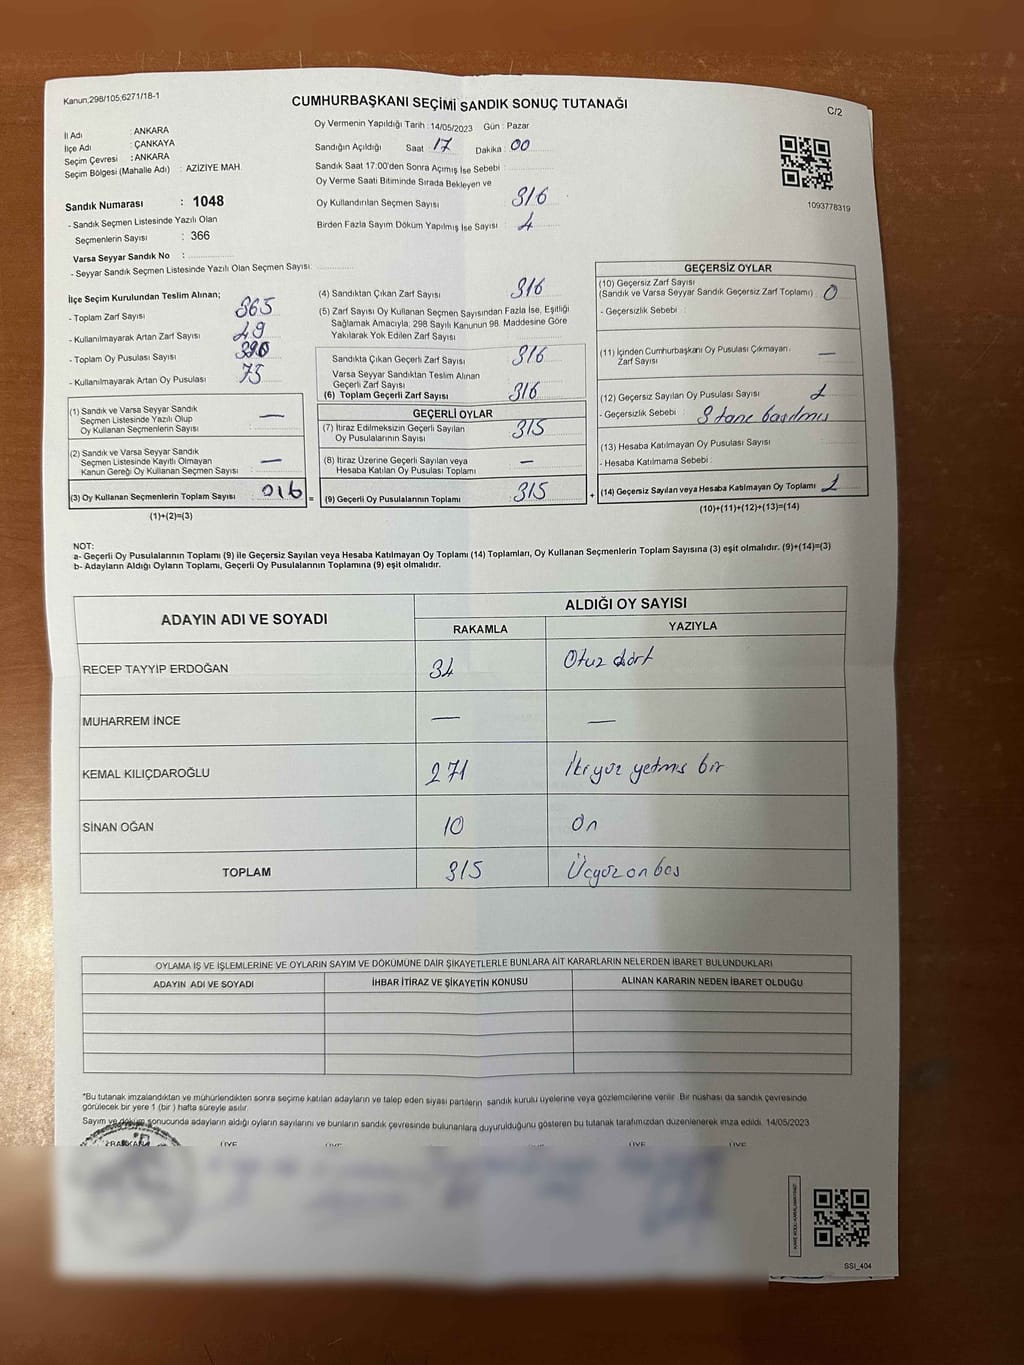 Kanun;298/105;6271/18-1
CUMHURBAŞKANI SEÇİMİ SANDIK SONUÇ TUTANAĞI
C/2
İl Adı : ANKARA
İlçe Adı : ÇANKAYA
Seçim Çevresi : ANKARA
Seçim Bölgesi (Mahalle Adı) : AZİZİYE MAH.
Sandık Numarası : 1048
- Sandık Seçmen Listesinde Yazılı Olan
Seçmenlerin Sayısı : 366
Varsa Seyyar Sandık No :
- Seyyar Sandık Seçmen Listesinde Yazılı Olan Seçmen Sayısı:
Oy Vermenin Yapıldığı Tarih : 14/05/2023 Gün : Pazar
Sandığın Açıldığı Saat : 17 Dakika : 00
Sandık Saat 17:00'den Sonra Açımış İse Sebebi :
Oy Verme Saati Bitiminde Sırada Bekleyen ve
Oy Kullandırılan Seçmen Sayısı 316
Birden Fazla Sayım Döküm Yapılmış İse Sayısı : 4
1093778319
İlçe Seçim Kurulundan Teslim Alınan;
- Toplam Zarf Sayısı 365
- Kullanılmayarak Artan Zarf Sayısı 49
- Toplam Oy Pusulası Sayısı
- Kullanılmayarak Artan Oy Pusulası 75
(1) Sandık ve Varsa Seyyar Sandık
Seçmen Listesinde Yazılı Olup
Oy Kullanan Seçmenlerin Sayısı : —
(2) Sandık ve Varsa Seyyar Sandık
Seçmen Listesinde Kayıtlı Olmayan
Kanun Gereği Oy Kullanan Seçmen Sayısı : —
(3) Oy Kullanan Seçmenlerin Toplam Sayısı : 316 =
(1)+(2)=(3)
(4) Sandıktan Çıkan Zarf Sayısı 316
(5) Zarf Sayısı Oy Kullanan Seçmen Sayısından Fazla İse, Eşitliği
Sağlamak Amacıyla, 298 Sayılı Kanunun 98. Maddesine Göre
Yakılarak Yok Edilen Zarf Sayısı
Sandıkta Çıkan Geçerli Zarf Sayısı 316
Varsa Seyyar Sandıktan Teslim Alınan
Geçerli Zarf Sayısı
(6) Toplam Geçerli Zarf Sayısı 316
GEÇERLİ OYLAR
(7) İtiraz Edilmeksizin Geçerli Sayılan
Oy Pusulalarının Sayısı 315
(8) İtiraz Üzerine Geçerli Sayılan veya
Hesaba Katılan Oy Pusulası Toplamı —
(9) Geçerli Oy Pusulalarının Toplamı 315 +
GEÇERSİZ OYLAR
(10) Geçersiz Zarf Sayısı
(Sandık ve Varsa Seyyar Sandık Geçersiz Zarf Toplamı) : 0
- Geçersizlik Sebebi :
(11) İçinden Cumhurbaşkanı Oy Pusulası Çıkmayan
Zarf Sayısı —
(12) Geçersiz Sayılan Oy Pusulası Sayısı 1
- Geçersizlik Sebebi : tane basılmış
(13) Hesaba Katılmayan Oy Pusulası Sayısı
- Hesaba Katılmama Sebebi :
(14) Geçersiz Sayılan veya Hesaba Katılmayan Oy Toplamı 1
(10)+(11)+(12)+(13)=(14)
NOT:
a- Geçerli Oy Pusulalarının Toplamı (9) ile Geçersiz Sayılan veya Hesaba Katılmayan Oy Toplamı (14) Toplamları, Oy Kullanan Seçmenlerin Toplam Sayısına (3) eşit olmalıdır. (9)+(14)=(3)
b- Adayların Aldığı Oyların Toplamı, Geçerli Oy Pusulalarının Toplamına (9) eşit olmalıdır.
ADAYIN ADI VE SOYADI ALDIĞI OY SAYISI
RAKAMLA YAZIYLA
RECEP TAYYİP ERDOĞAN 34 Otuz dört
MUHARREM İNCE — —
KEMAL KILIÇDAROĞLU 271 İkiyüz yetmiş bir
SİNAN OĞAN 10 On
TOPLAM 315 Üçyüz on beş
OYLAMA İŞ VE İŞLEMLERİNE VE OYLARIN SAYIM VE DÖKÜMÜNE DAİR ŞİKAYETLERLE BUNLARA AİT KARARLARIN NELERDEN İBARET BULUNDUKLARI
ADAYIN ADI VE SOYADI İHBAR İTİRAZ VE ŞİKAYETİN KONUSU ALINAN KARARIN NEDEN İBARET OLDUĞU
*Bu tutanak imzalandıktan ve mühürlendikten sonra seçime katılan adayların ve talep eden siyasi partilerin sandık kurulu üyelerine veya gözlemcilerine verilir. Bir nüshası da sandık çevresinde
görülecek bir yere 1 (bir ) hafta süreyle asılır.
Sayım ve döküm sonucunda adayların aldığı oyların sayılarını ve bunların sandık çevresinde bulunanlara duyurulduğunu gösteren bu tutanak tarafımızdan düzenlenerek imza edildi. 14/05/2023
ÜYE ÜYE ÜYE ÜYE ÜYE
SSI_404